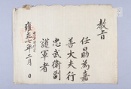 教旨
任 萬嘉
善大夫行
忠武衛副
護軍者
雍正七年二月 日